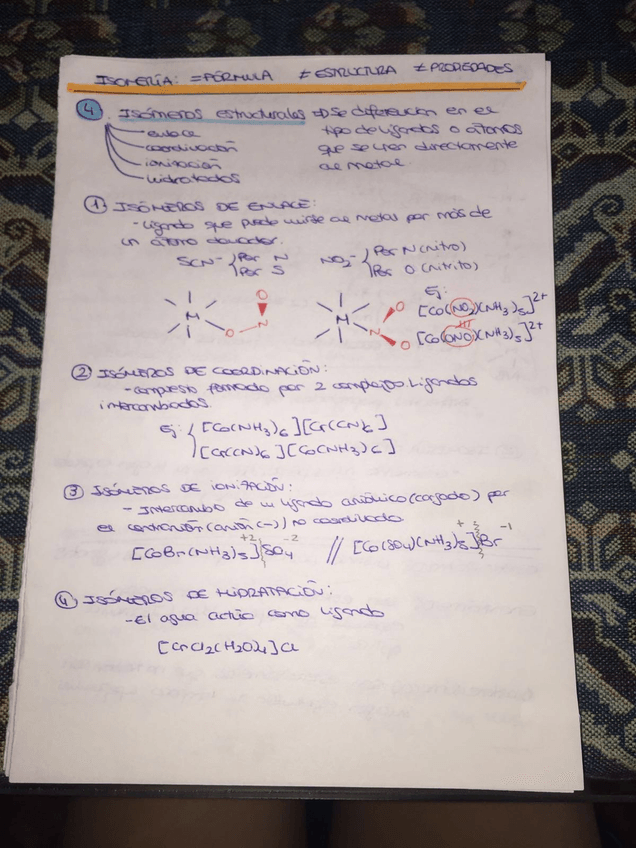 ISOMERÍA: = FÓRMULA ≠ ESTRUCTURA ≠ PROPIEDADES
4. Isómeros estructurales ⇒ Se diferencian en el
tipo de ligandos o átomos
que se unen directamente
al metal
enlace
coordinación
ionización
hidratados
① ISÓMEROS DE ENLACE:
- Ligando que puede unirse al metal por más de
un átomo dador.
SCN⁻ { Por N
Por S
NO₂⁻ { Por N (nitro)
Por O (nitrito)
M O N O
M N O O
Ej:
[Co(NO₂)(NH₃)₅]²⁺
[Co(ONO)(NH₃)₅]²⁺
② ISÓMEROS DE COORDINACIÓN:
- compuesto formado por 2 complejos. Ligandos
intercambiados.
Ej: { [Co(NH₃)₆][Cr(CN)₆]
[Cr(CN)₆][Co(NH₃)₆]
③ ISÓMEROS DE IONIZACIÓN:
- Intercambio de un ligando aniónico (cargado) por
el contraión (anión (-)) no coordinado
[CoBr(NH₃)₅]⁺² SO₄⁻² // [Co(SO₄)(NH₃)₅]⁺ Br⁻¹
④ ISÓMEROS DE HIDRATACIÓN:
- El agua actúa como ligando
[CrCl₂(H₂O)₄]Cl